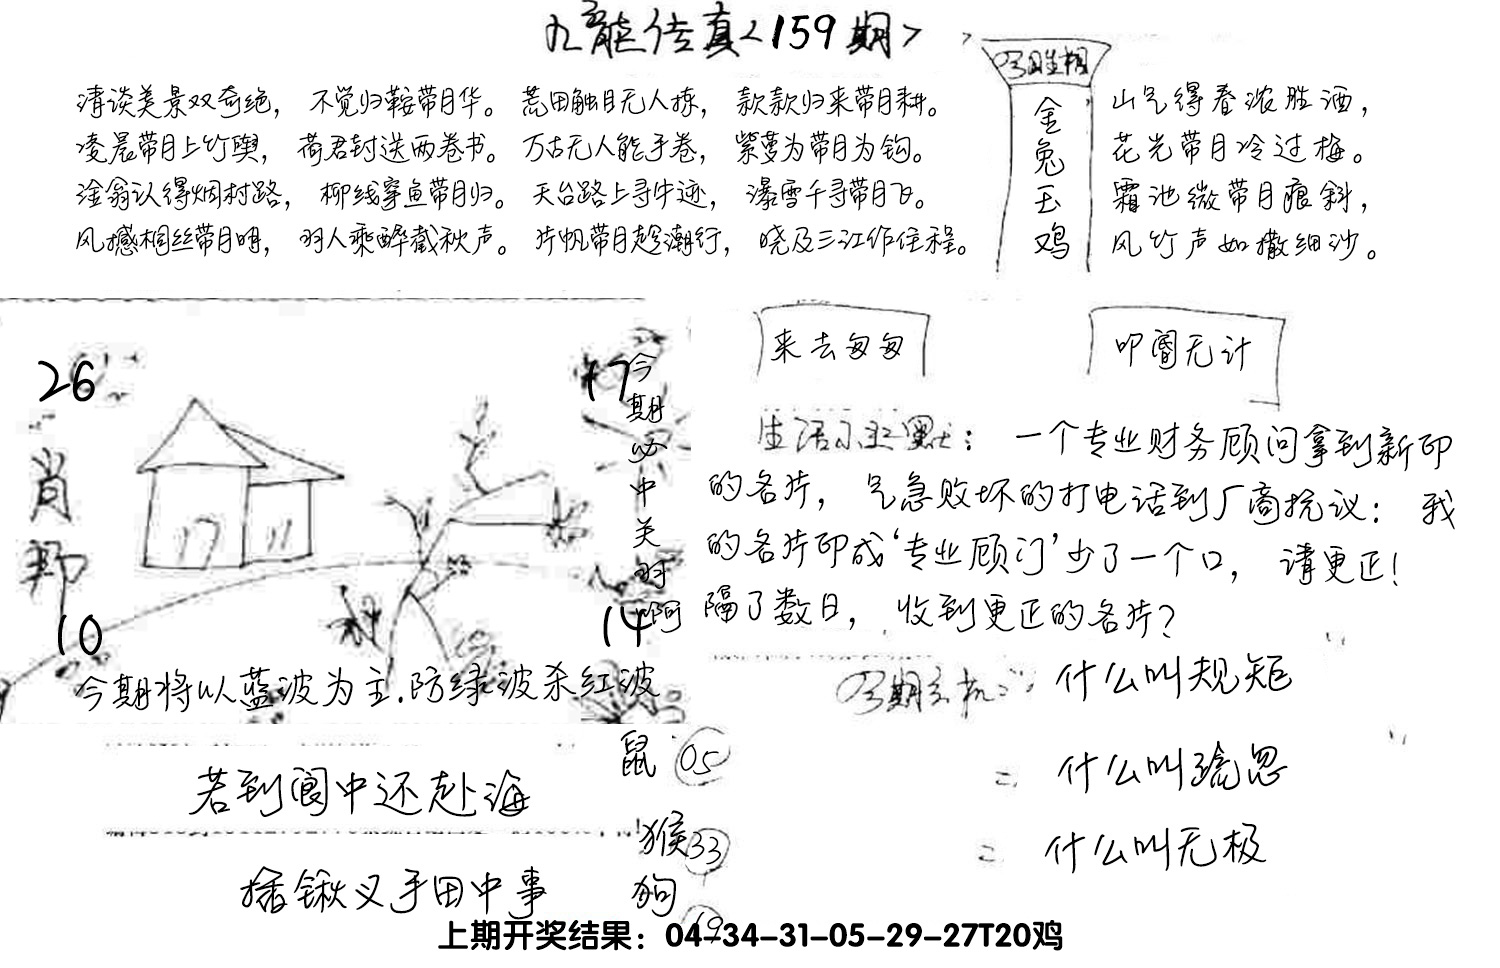 九龍传真<159期>
清谈美景双奇绝，不觉归鞍带月华。荒田触目无人拣，款款归来带月耕。
凌晨带月上竹舆，荷君封送两卷书。万古无人能手卷，紫萝为带月为钩。
淦翁认得烟村路，柳线穿鱼带月归。天台路上寻牛迹，瀑雪千寻带月飞。
风撼相丝带月明，羽人乘醉截秋声。片帆带月趁潮行，晓及三江作住程。
金兔玉鸡
山气得春浓胜酒，
花光带月冷过梅。
霜池微带月痕斜，
风竹声如撒细沙。
26
17
肖
10
14
今期必中关羽啊
今期将以蓝波为主.防绿波杀红波
来去匆匆
叩阍无计
生活小幽默：一个专业财务顾问拿到新印
的名片，气急败坏的打电话到厂商抗议：我
的名片印成‘专业顾门’少了一个口，请更正！
隔了数日，收到更正的名片？
今期玄机 什么叫规矩
二 什么叫疏忽
二 什么叫无极
若到阆中还赴海
插锹义手田中事
鼠 05
猴 33
狗 19
上期开奖结果：04-34-31-05-29-27T20鸡